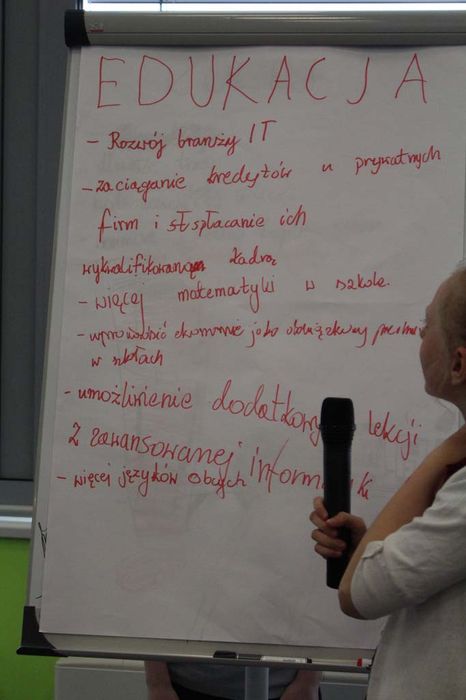 EDUKACJA
- Rozwój branży IT
- zaciąganie kredytów u prywatnych
firm i spłacanie ich
wykwalifikowaną kadrą
- więcej matematyki w szkole.
- wprowadzić ekonomie jako obowiązkowy
w szkołach
- umożliwienie lekcji
z zawansowanej
- więcej języków obcych